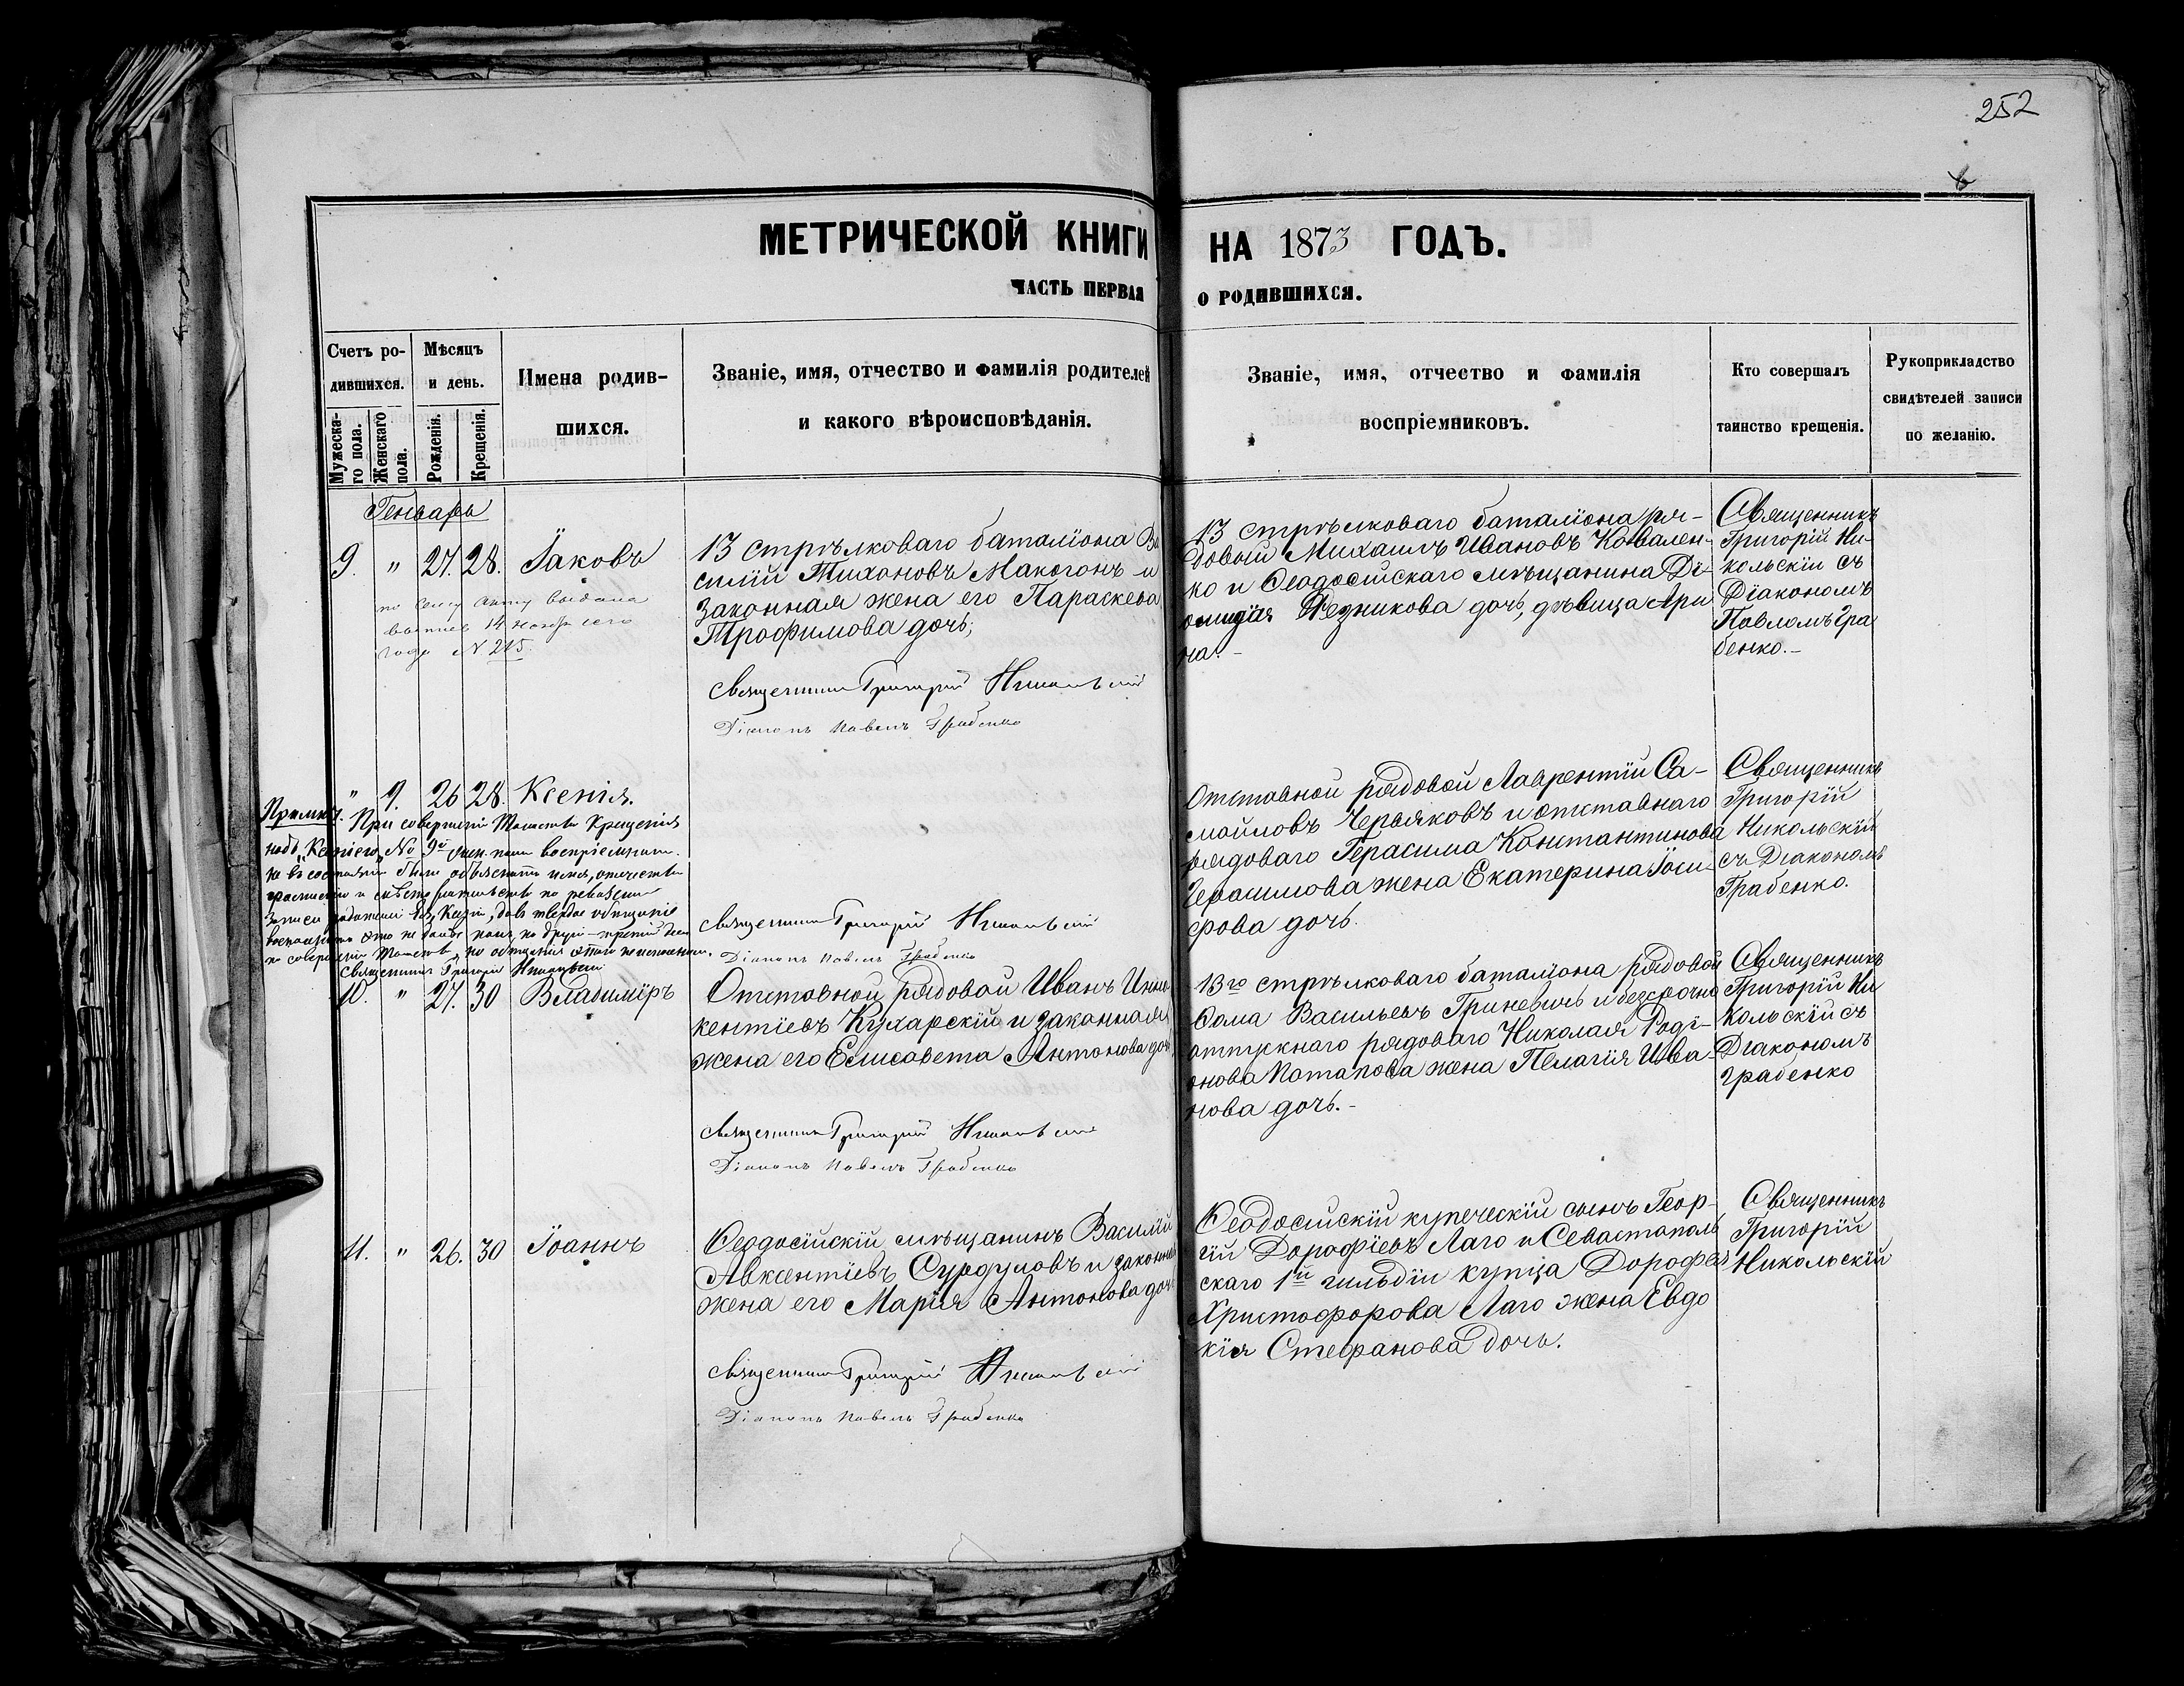 252
6
МЕТРИЧЕСКОЙ КНИГИ НА 1873 ГОДЪ.
ЧАСТЬ ПЕРВАЯ О РОДИВШИХСЯ.
Счетъ ро-
дившихся.
Мужеска-
го пола.
Женскаго
пола.
Мѣсяцъ
и день.
Рожденія.
Крещенія.
Имена родив-
шихся.
Званіе, имя, отчество и фамилія родителей
и какого вѣроисповѣданія.
Званіе, имя, отчество и фамилія
воспріемниковъ.
Кто совершалъ
таинство крещенія.
Рукоприкладство
свидѣтелей записи
по желанію.
Генварь
9. " 27. 28. Іаковъ
по сему акту выдана
14 Нояб сего
года N 215.
13 стрѣлковаго баталіона Ва
силій Тихоновъ Макогонъ и
законная жена его Параскева
Трофимова дочь;
Священникъ Григорій Никольскій
Діаконъ Павелъ Грабенко
13 стрѣлковаго баталіона ря-
довый Михаилъ Ивановъ Ковален-
ко и Ѳеодосійскаго мѣщанина Ді-
Резникова дочь, дѣвица Ари
на.-
Священникъ
Григорій Ни-
кольскій съ
Діакономъ
Павломъ Гра
бенко.-
" 9. 26 28. Ксенія.
При совершеніи Таинства Крещенія
надъ "Ксеніею" No 9й
Священникъ Григорій Никольскій
Священникъ Григорій Никольскій
Діаконъ Павелъ Грабенко
Отставной рядовой Лаврентій Са-
мойловъ Черьяковъ и отставнаго
рядоваго Герасима Константинова
Герасимова жена Екатерина Іоси-
фова дочь.
Священникъ
Григорій
Никольскій
съ Діакономъ
Грабенко.
10. " 27. 30 Владиміръ
Отставной рядовой Иванъ Инно
кентіевъ Кухарскій и законная
жена его Елисавета Антонова доч
Священникъ Григорій Никольскій
Діаконъ Павелъ Грабенко
13го стрѣлковаго баталіона рядовой
Ѳома Васильевъ Гриневичъ и безсрочно
отпускнаго рядоваго Николая Роді-
онова Потапова жена Пелагія Ива-
нова дочь.-
Священникъ
Григорій Ни
кольскій съ
Діакономъ
Грабенко
11. " 26. 30 Іоаннъ
Ѳеодосійскій мѣщанинъ Василій
Авксентіевъ Сурдуловъ и законная
жена его Марія Антонова доч
Священникъ Григорій Никольскій
Діаконъ Павелъ Грабенко
Ѳеодосійскій купеческій сынъ Геор-
гій Дорофіевъ Лаго и Севастополь
скаго 1й гильдіи купца Дорофея
Христофорова Лаго жена Евдо
кія Стефанова дочь.
Священникъ
Григорій
Никольскій